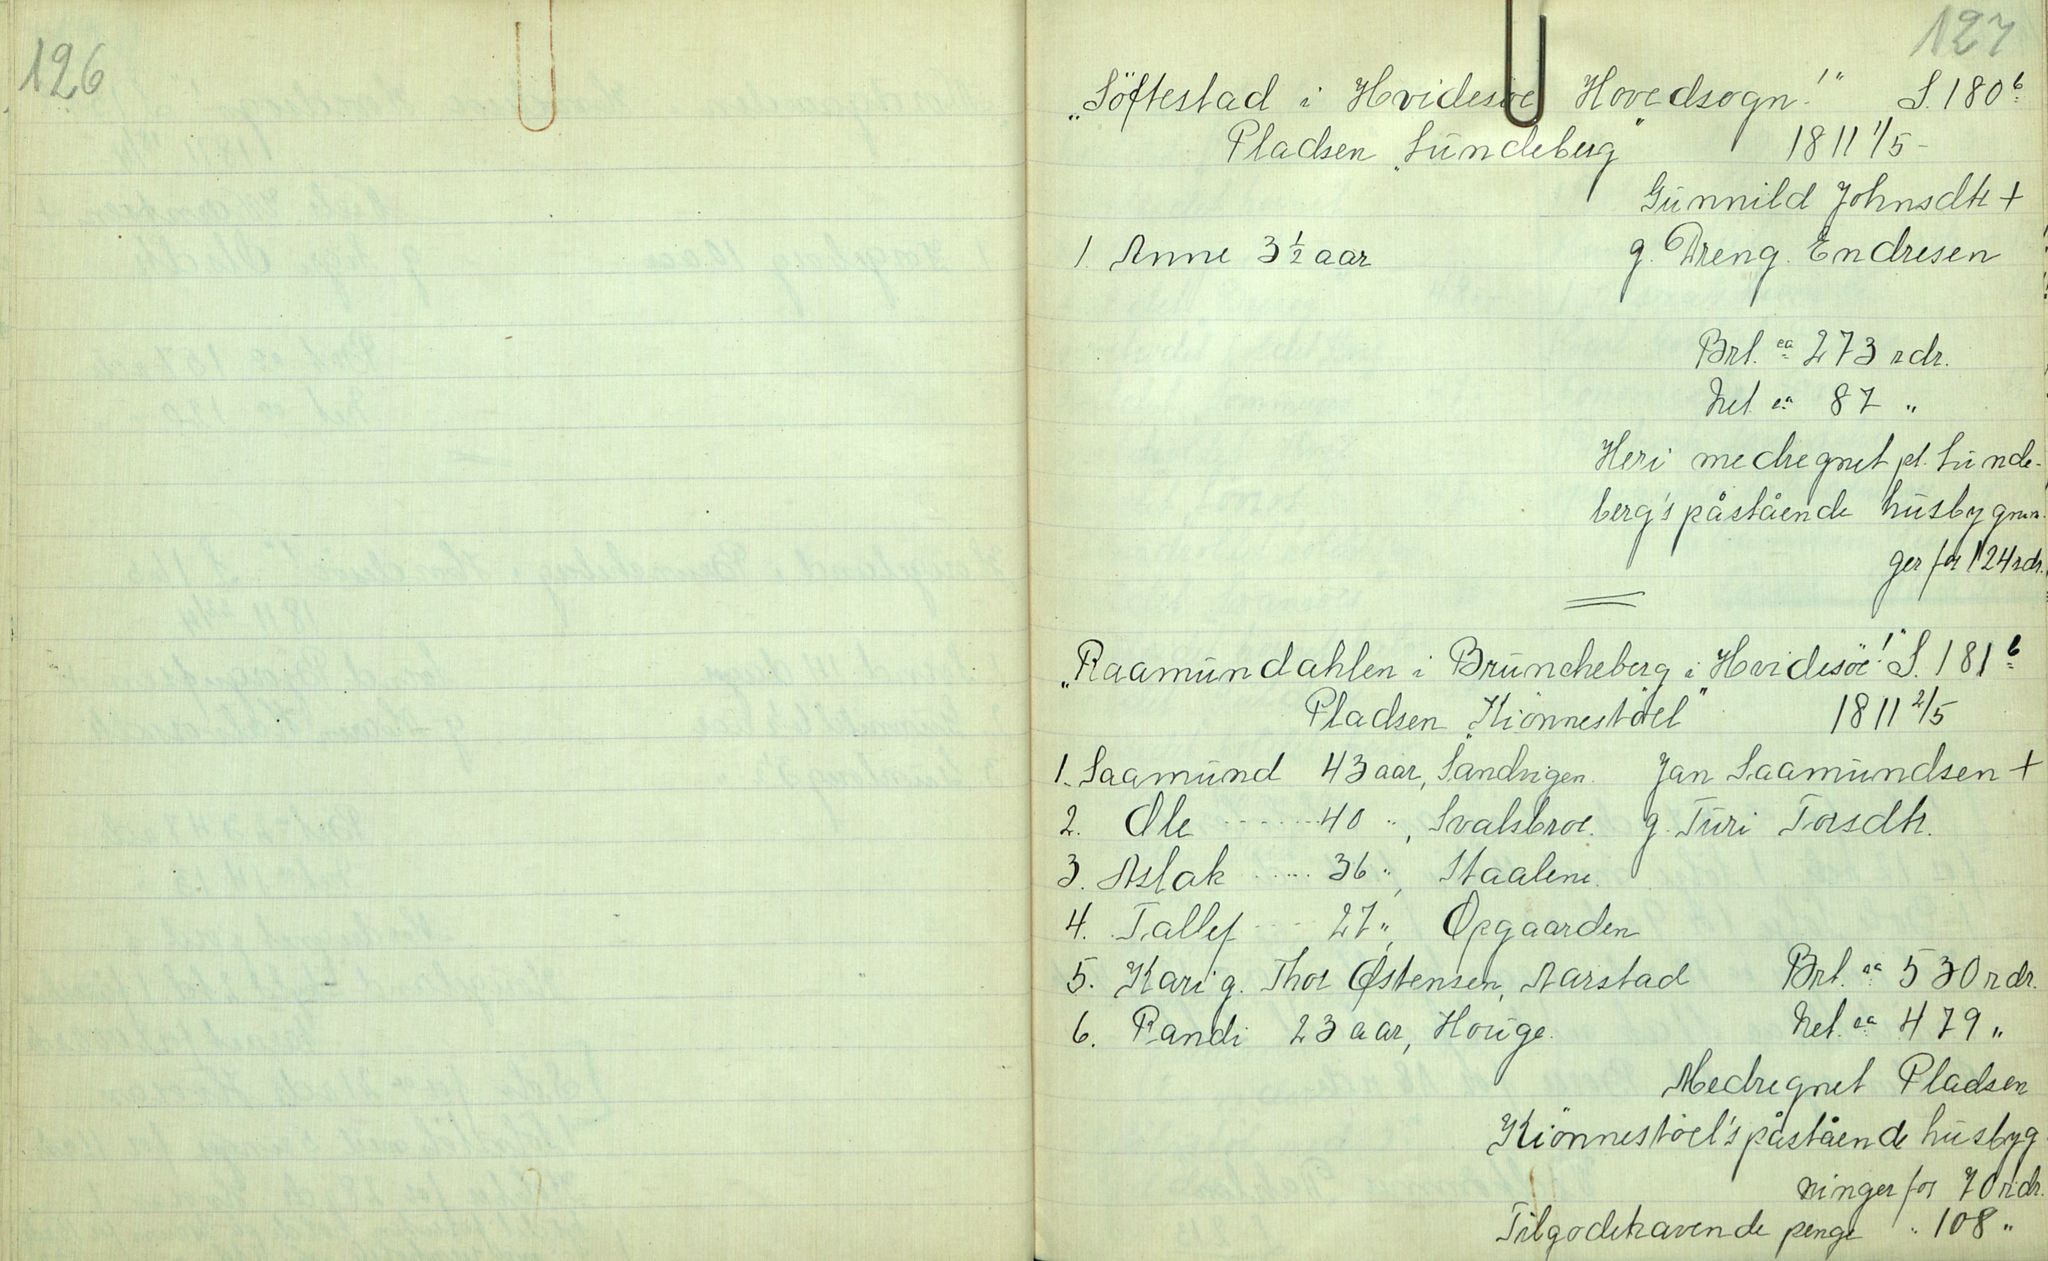 126
127
„Söftestad i Hvidesøe Hovedsogn!" S. 180 b
Pladsen „Lundeberg" 1811 1/5
Gunnild Johnsdtr +
1. Anne 3 1/2 aar g. Dreng Endresen
Brt. ca 273 rdr.
Net. ca 87 „
Heri medregnet pl. Lunde-
berg's påstående husbygnin-
ger for 124 rdr.
„Raamundahlen i Bruncheberg i Hvidesöe!" S. 181 b
Pladsen „Kiönnestöel" 1811 2/5
1. Saamund 43 aar, Sandvigen. Jan Saamundsen +
2. Ole ...... 40 „, Svalsbroe. g. Turi Torsdtr.
3. Aslak ..... 36 „, Staalene.
4. Tallef .... 27 „, Opgaarden
5. Kari g. Thor Østensen, Aarstad Brt. ca 530 rdr.
6. Randi 23 aar, Houge. Net. ca 479 „
Medregnet Pladsen
Kiönnestöel's påstående husbyg
ninger for 70 rdr.
Tilgodehavende penge „ 108 „